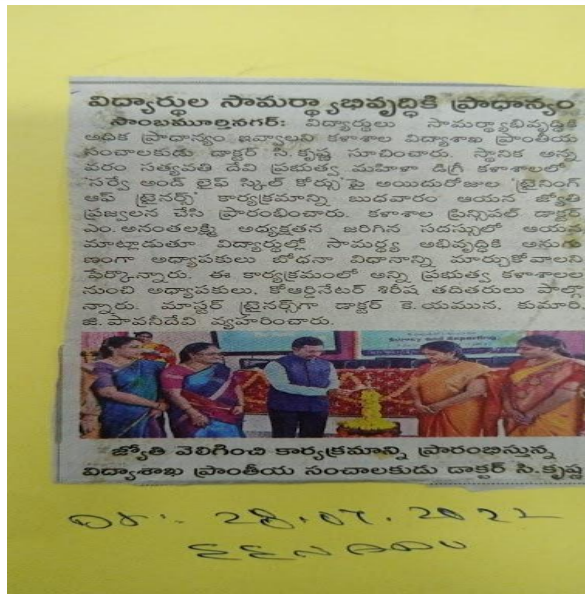 విద్యార్థుల సామర్థ్యాభివృద్ధికి ప్రాధాన్యం
సాంబమూర్తినగర్: విద్యార్థులు సామర్థ్యాభివృద్ధికి
అధిక ప్రాధాన్యం ఇవ్వాలని కళాశాల విద్యాశాఖ ప్రాంతీయ
సంచాలకుడు డాక్టర్ సి.కృష్ణ సూచించారు. స్థానిక అన్న
వరం సత్యవతి దేవి ప్రభుత్వ మహిళా డిగ్రీ కళాశాలలో
'సర్వే అండ్ లైఫ్ స్కిల్ కోర్సు'పై అయిదురోజుల 'ట్రైనింగ్
ఆఫ్ ట్రైనర్స్' కార్యక్రమాన్ని బుధవారం ఆయన జ్యోతి
ప్రజ్వలన చేసి ప్రారంభించారు. కళాశాల ప్రిన్సిపల్ డాక్టర్
ఎం.అనంతలక్ష్మి అధ్యక్షతన జరిగిన సదస్సులో ఆయన
మాట్లాడుతూ విద్యార్థుల్లో సామర్థ్య అభివృద్ధికి అనుగు
ణంగా అధ్యాపకులు బోధనా విధానాన్ని మార్చుకోవాలని
పేర్కొన్నారు. ఈ కార్యక్రమంలో అన్ని ప్రభుత్వ కళాశాలల
నుంచి అధ్యాపకులు, కోఆర్డినేటర్ శిరీష తదితరులు పాల్గొ
న్నారు. మాస్టర్ ట్రైనర్స్‌గా డాక్టర్ కె.యమున, కుమారి
జి.పావనీదేవి వ్యహరించారు.
Survey and Reporting
జ్యోతి వెలిగించి కార్యక్రమాన్ని ప్రారంభిస్తున్న
విద్యాశాఖ ప్రాంతీయ సంచాలకుడు డాక్టర్ సి.కృష్ణ
Dt:- 28.07.2022
EENADU